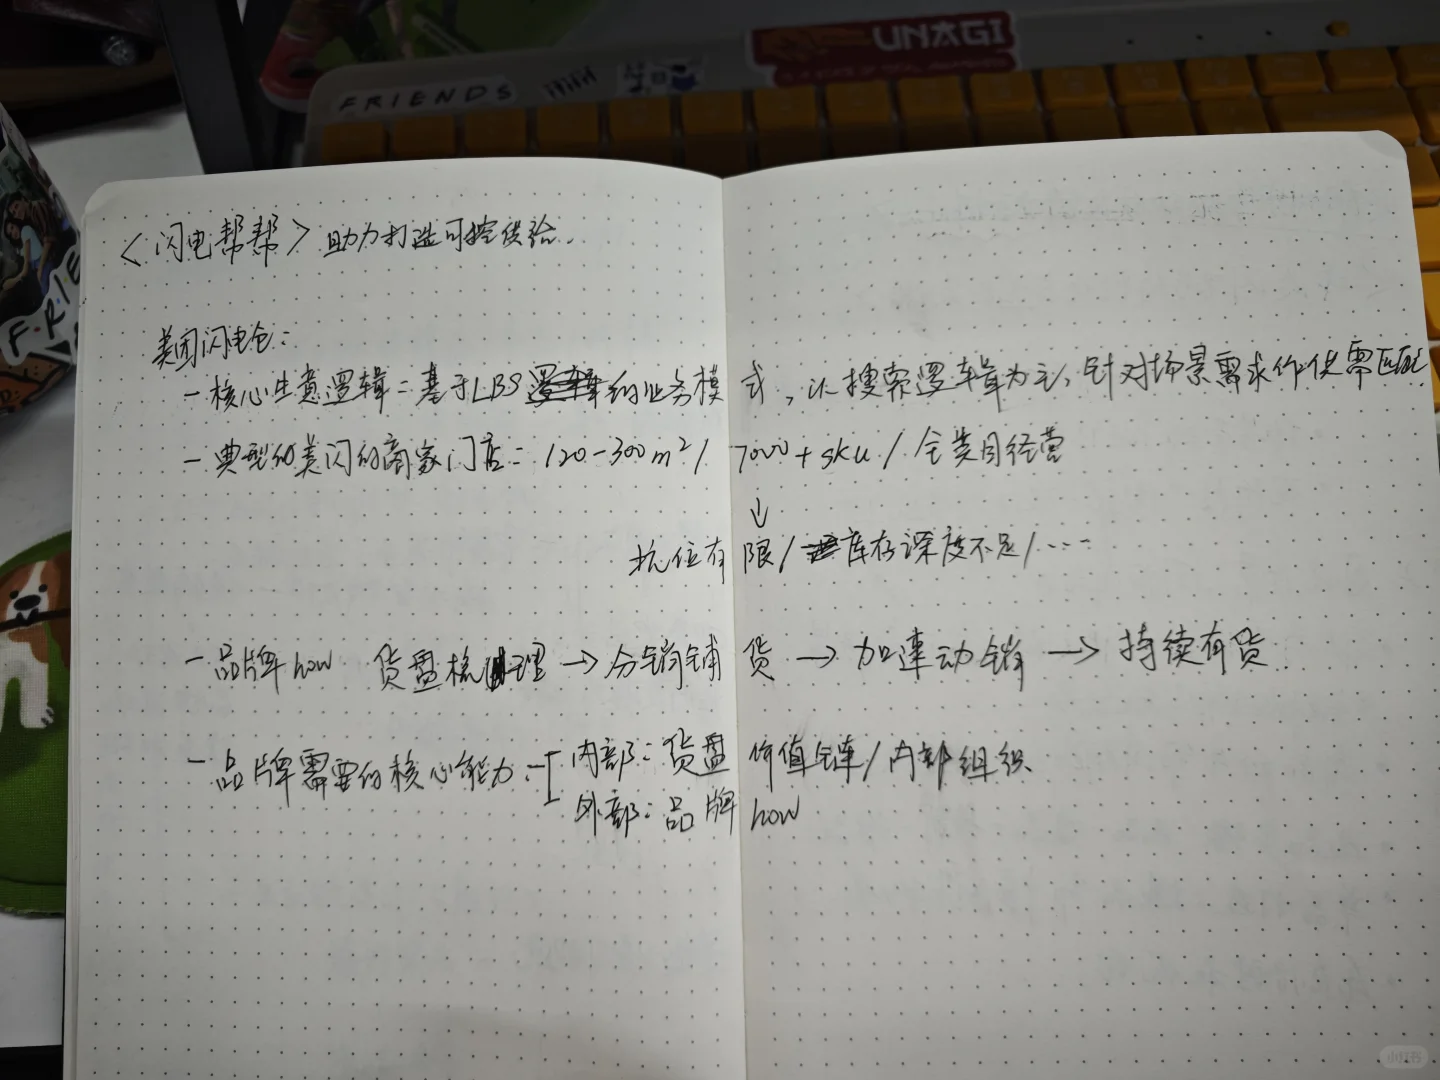 UNAGI
FRIENDS
<闪电帮帮> 助力打造可控供给.
美团闪电仓:
- 核心生意逻辑: 基于LBS的业务模式, 以搜索逻辑为主, 针对场景需求作供需匹配
- 典型的美闪的商家门店: 120-300m²/ 7000+sku/ 全类目经营
↓
坑位有限/ 库存深度不足/ ....
- 品牌how 货盘梳理 → 分销铺货 → 加速动销 → 持续有货
- 品牌需要的核心能力: 内部: 货盘价值链/ 内部组织.
外部: 品牌how
小红书